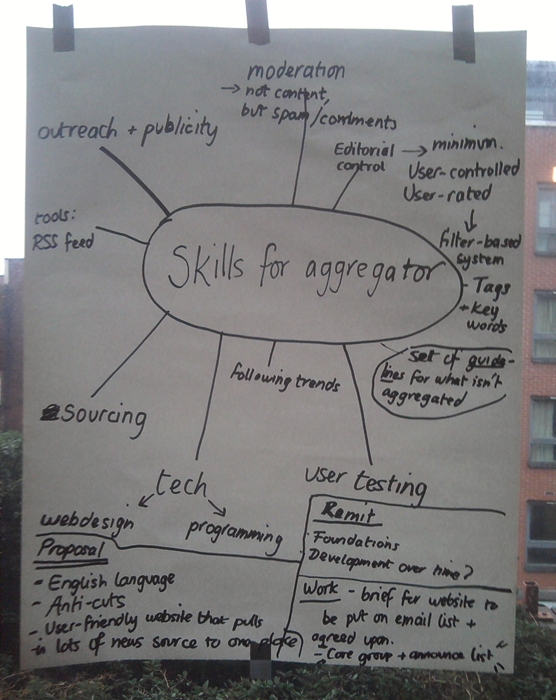 moderation
→ not content,
but spam/comments
outreach + publicity
Editorial → minimum.
control
User-controlled
User-rated
↓
filter-based
system
- Tags
+ key
words
tools:
RSS feed
Skills for aggregator
set of guide-
lines for what isn't
aggregated
following trends
Sourcing
tech
webdesign
programming
user testing
Proposal
- English language
- Anti-cuts
- User-friendly website that pulls
in lots of news source to one place
Remit
Foundations
Development over time?
Work - brief for website to
be put on email list +
agreed upon.
- Core group + announce list"